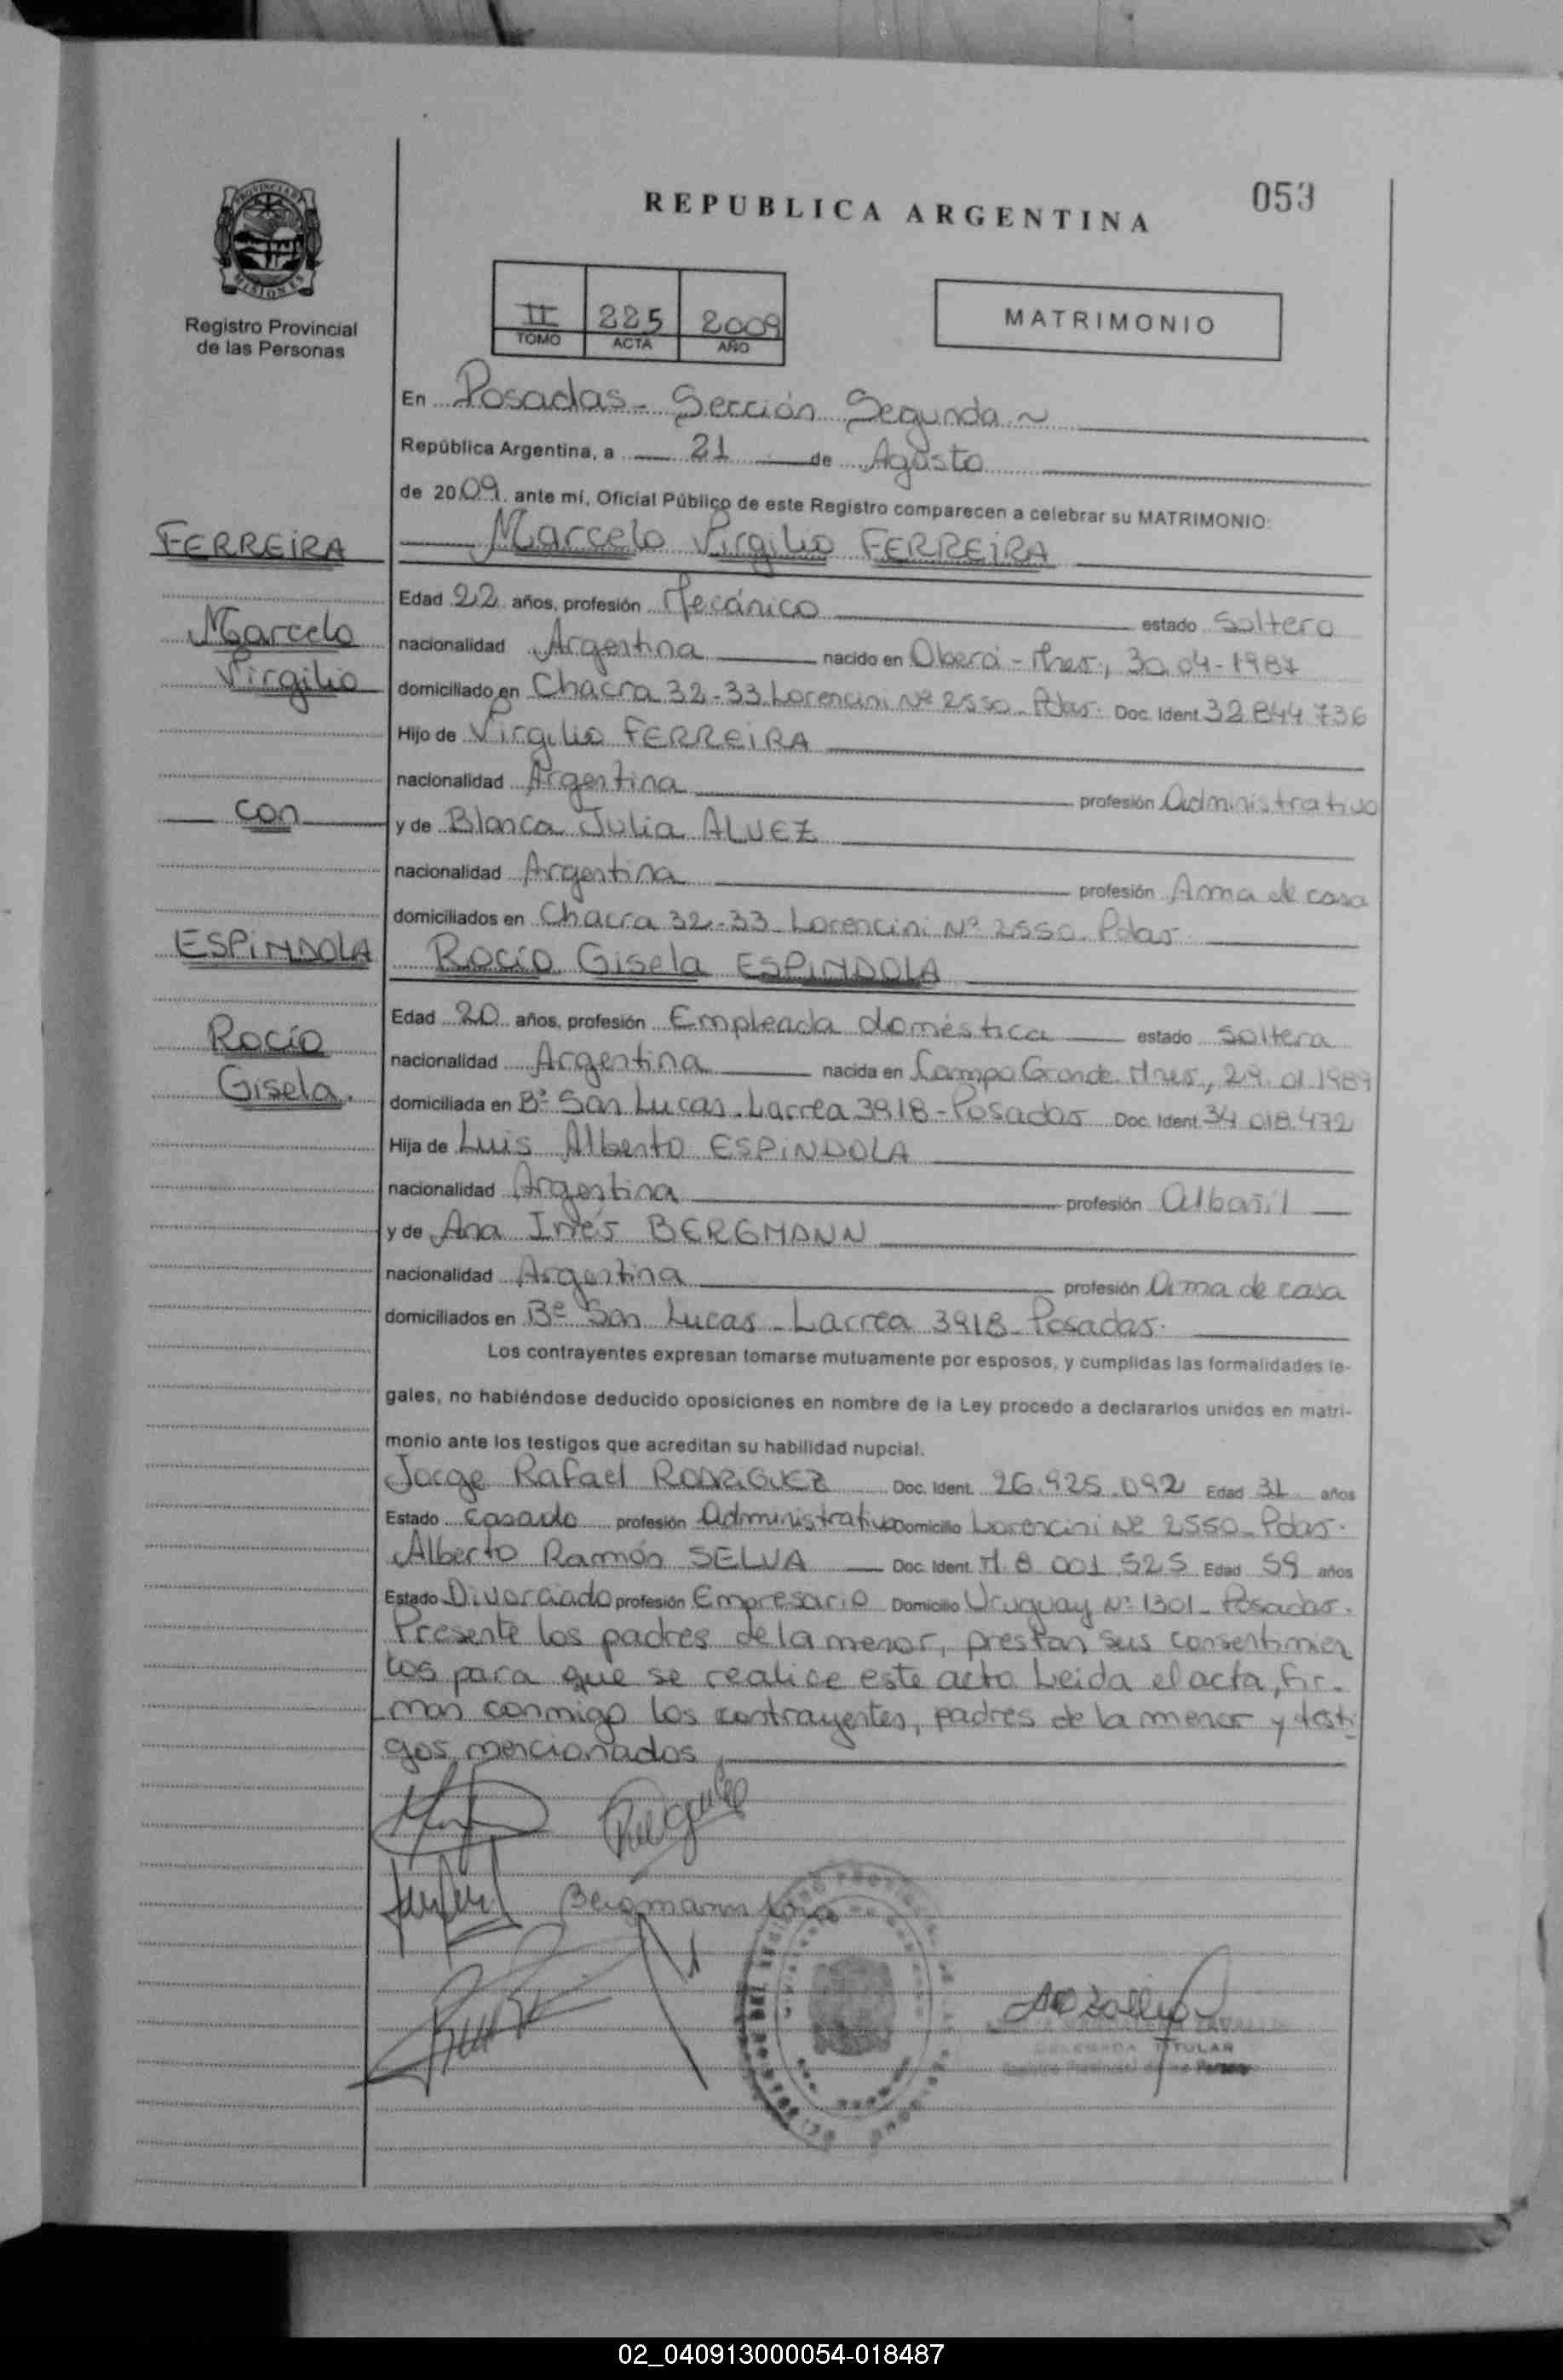 053
REPUBLICA ARGENTINA
PROVINCIA DE MISIONES
Registro Provincial
de las Personas
II 225 2009
TOMO ACTA AÑO
MATRIMONIO
En Posadas - Sección Segunda ~
República Argentina, a 21 de Agosto
de 2009 ante mí, Oficial Público de este Registro comparecen a celebrar su MATRIMONIO:
FERREIRA
Marcelo Virgilio FERREIRA
Edad 22 años, profesión Mecánico estado Soltero
Marcelo
nacionalidad Argentina nacido en Oberá - Mnes., 30.04-1987
Virgilio
domiciliado en Chacra 32-33 Lorencini Nº 2550 - Pdas. Doc. Ident. 32.844.736
Hijo de Virgilio FERREIRA
nacionalidad Argentina profesión Administrativo
con
y de Blanca Julia ALVEZ
nacionalidad Argentina profesión Ama de casa
domiciliados en Chacra 32-33 Lorencini Nº 2550 - Pdas.
ESPINDOLA
Rocío Gisela ESPINDOLA
Edad 20 años, profesión Empleada doméstica estado Soltera
Rocío
nacionalidad Argentina nacida en Campo Grande - Mnes, 29.01.1989
Gisela.
domiciliada en Bº San Lucas - Larrea 3918 - Posadas Doc. Ident. 34.018.472
Hija de Luis Alberto ESPINDOLA
nacionalidad Argentina profesión Albañil
y de Ana Inés BERGMANN
nacionalidad Argentina profesión Ama de casa
domiciliados en Bº San Lucas - Larrea 3918 - Posadas.
Los contrayentes expresan tomarse mutuamente por esposos, y cumplidas las formalidades le-
gales, no habiéndose deducido oposiciones en nombre de la Ley procedo a declararlos unidos en matri-
monio ante los testigos que acreditan su habilidad nupcial.
Jorge Rafael RODRIGUEZ Doc. Ident. 26.925.092 Edad 31 años
Estado Casado profesión Administrativo Domicilio Lorencini Nº 2550 - Pdas.
Alberto Ramón SELVA Doc. Ident. M 8.001.525 Edad 59 años
Estado Divorciado profesión Empresario Domicilio Uruguay Nº 1301 - Posadas.
Presente los padres de la menor, prestan sus consentimien
tos para que se realice este acto. Leida el acta, fir-
man conmigo los contrayentes, padres de la menor y testi
gos mencionados
Bergmann Ana
TITULAR
02_040913000054-018487